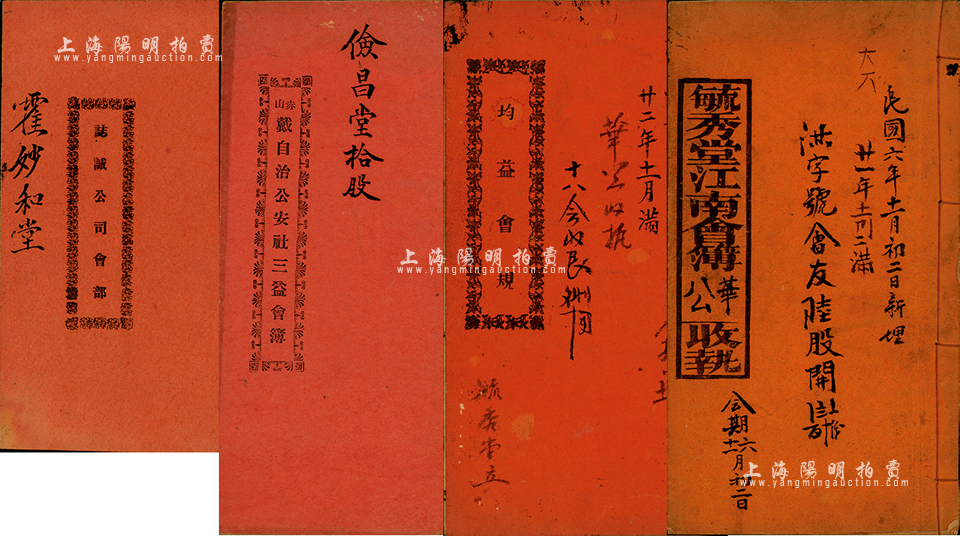 上海陽明拍賣
www.yangmingauction.com
霍妙和堂
誌誠公司會部
儉昌堂拾股
赤山戴自治公安社三益會簿
均益會規
廿二年十一月滿
華公收執
十八会收艮
毓秀堂立
上海陽明拍賣
www.yangmingauction.com
毓秀堂江南會簿華公收執
民國六年十一月初二日新埋
廿一年十一月初二滿
洪字號會友陸股開
会期六月初二日
十二
上海陽明拍賣
www.yangmingauction.com